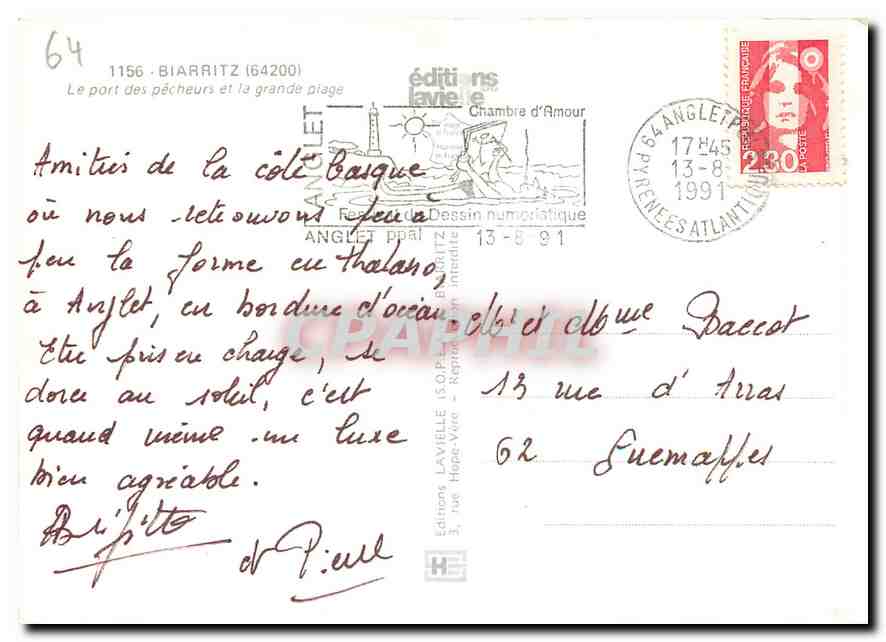 64
1156 - BIARRITZ (64200)
Le port des pêcheurs et la grande plage
éditions
lavielle
ANGLET
Chambre d'Amour
Festival du Dessin humoristique
ANGLET ppal 13-8-91
64 ANGLET PPAL
17H45
13-8
1991
PYRENEES ATLANTIQUES
REPUBLIQUE FRANÇAISE
2.30
LA POSTE
Amitiés de la côte basque
où nous retrouvons peu à
peu la forme en thalasso,
à Anglet, en bordure d'océan.
Etre pris en charge, se
dorer au soleil, c'est
quand même un luxe
bien agréable.
Brigitte
et Pierre
Mr et Mme Baccot
13 rue d'Arras
62 Guemappes
Editions LAVIELLE (S.O.P.E.) BIARRITZ
3, rue Hope-Vère - Reproduction interdite
CPAPHIL